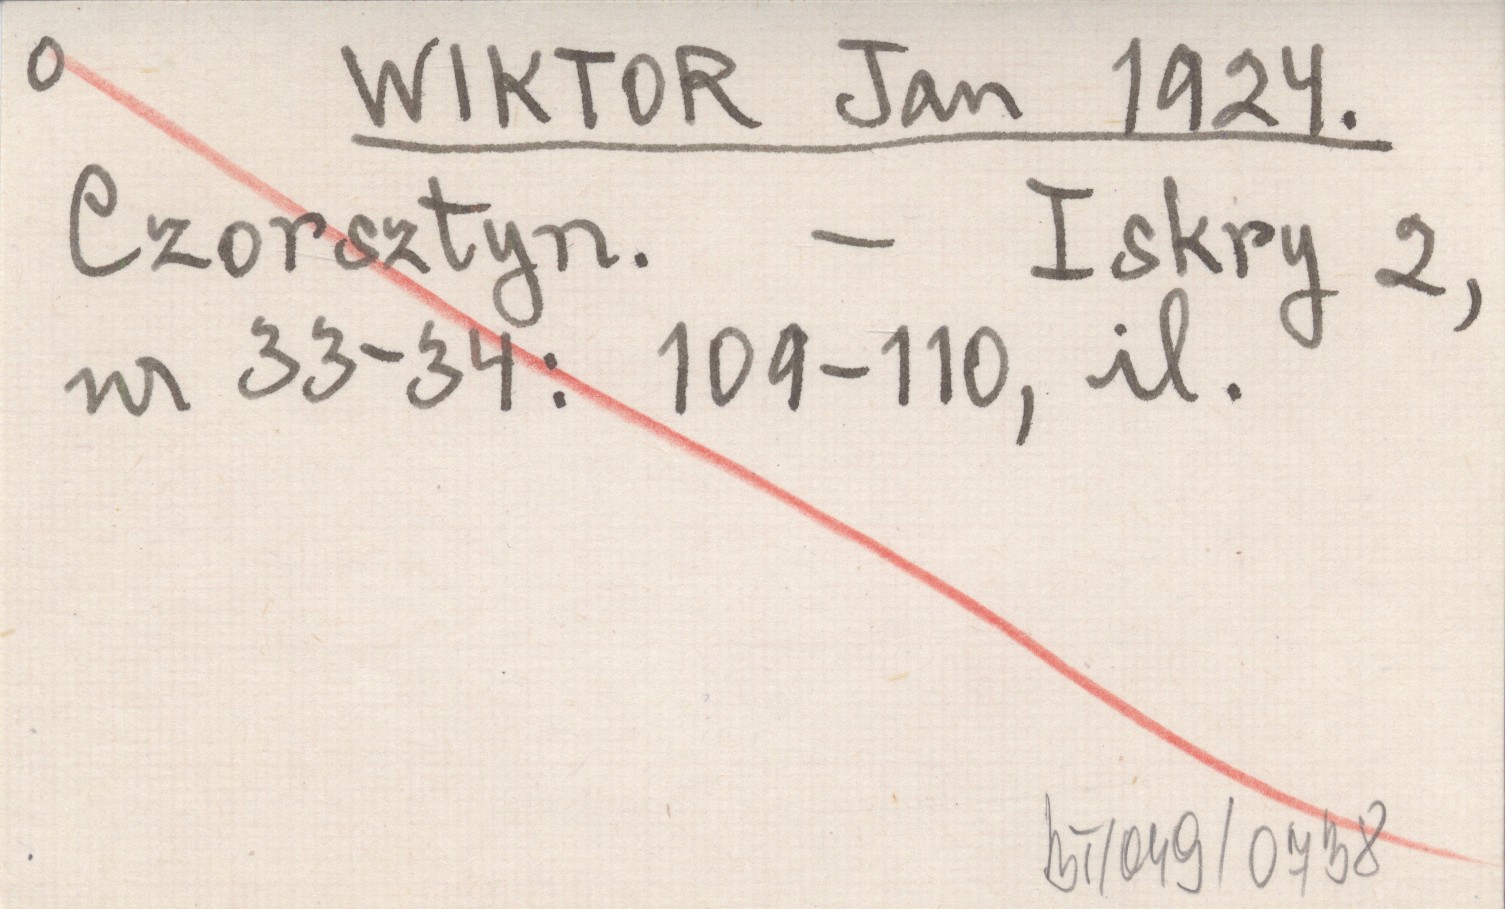 O WIKTOR Jan 1924.
Czorsztyn. – Iskry 2,
nr 33-34: 109-110, il.
BT/049/0738